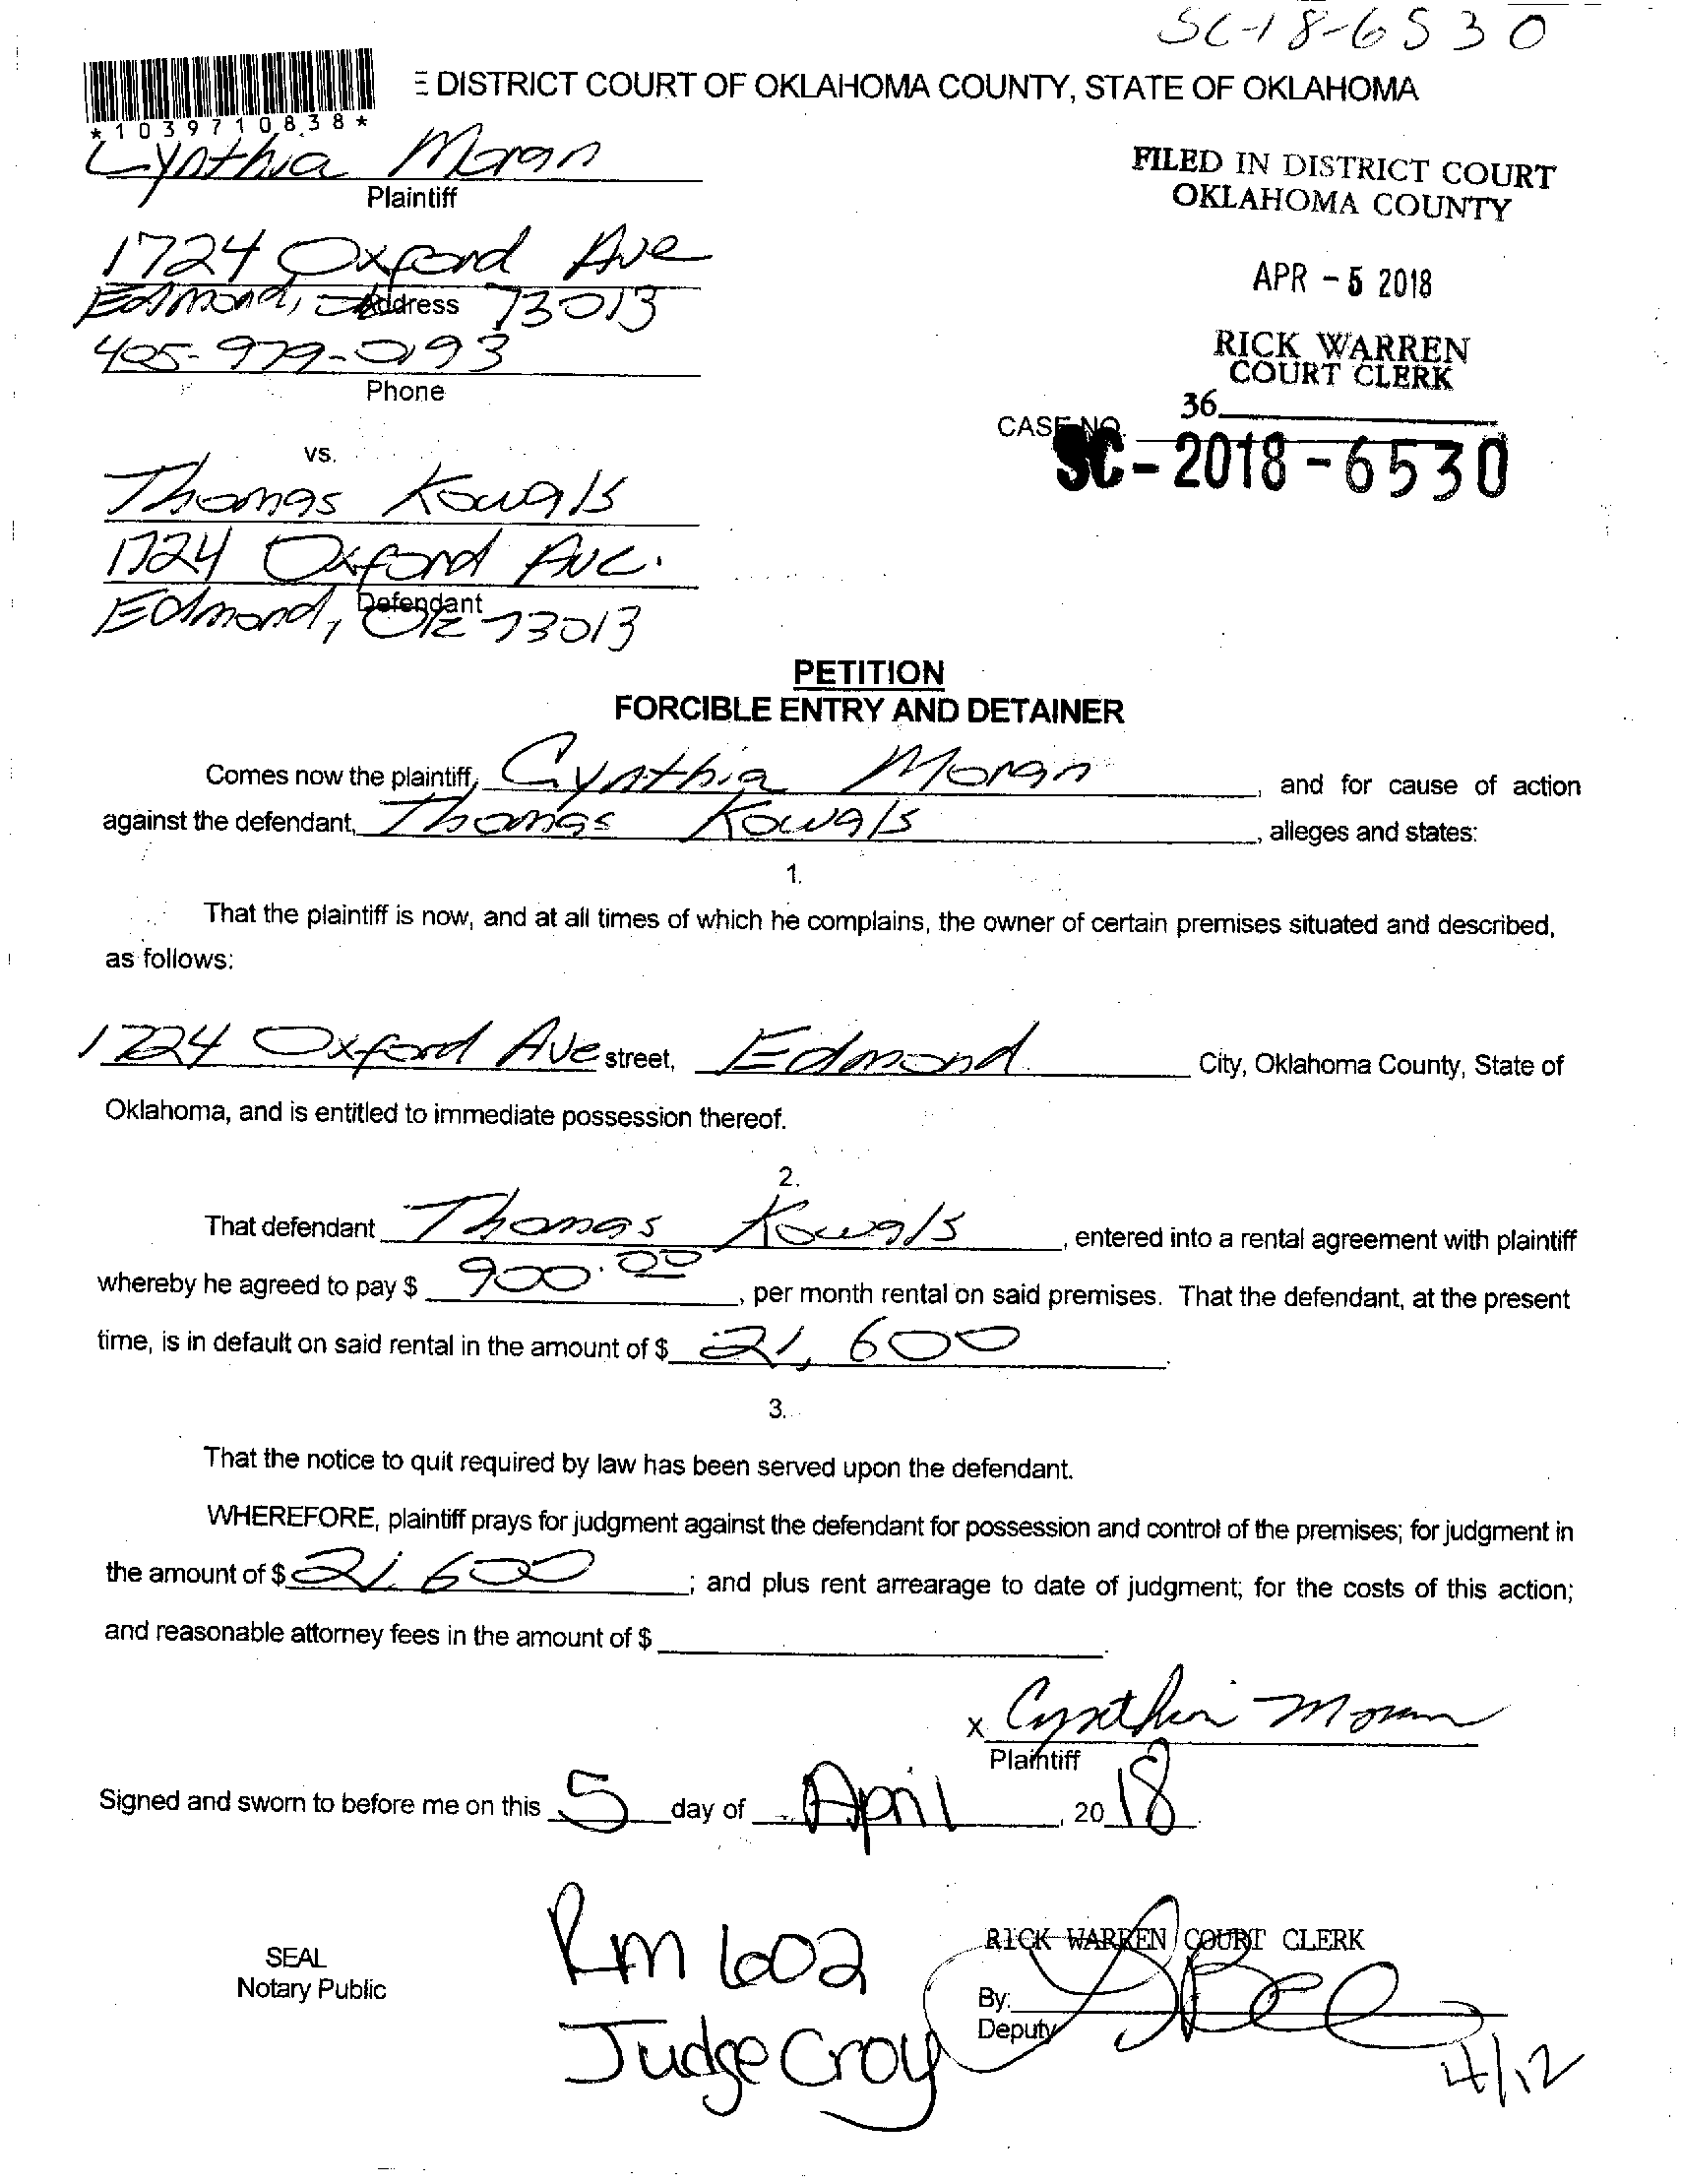 SC-18-6530
E DISTRICT COURT OF OKLAHOMA COUNTY, STATE OF OKLAHOMA
*1039710838*
Cynthia Moran
Plaintiff
1724 Oxford Ave
Address
Edmond, 73013
405-979-0193
Phone
FILED IN DISTRICT COURT
OKLAHOMA COUNTY
APR - 5 2018
RICK WARREN
COURT CLERK
36
CASE NO.
SC-2018-6530
vs.
Thomas Kowals
1724 Oxford Ave.
Defendant
Edmond, OK 73013
PETITION
FORCIBLE ENTRY AND DETAINER
Comes now the plaintiff, Cynthia Moran, and for cause of action
against the defendant, Thomas Kowals, alleges and states:
1.
That the plaintiff is now, and at all times of which he complains, the owner of certain premises situated and described,
as follows:
1724 Oxford Ave street, Edmond City, Oklahoma County, State of
Oklahoma, and is entitled to immediate possession thereof.
2.
That defendant Thomas Kowals, entered into a rental agreement with plaintiff
whereby he agreed to pay $ 900.00, per month rental on said premises. That the defendant, at the present
time, is in default on said rental in the amount of $ 21,600.
3.
That the notice to quit required by law has been served upon the defendant.
WHEREFORE, plaintiff prays for judgment against the defendant for possession and control of the premises; for judgment in
the amount of $ 21,600; and plus rent arrearage to date of judgment; for the costs of this action;
and reasonable attorney fees in the amount of $
x Cynthia Moran
Plaintiff
Signed and sworn to before me on this 5 day of April, 2018.
SEAL
Notary Public
Rm 602
Judge Croy
RICK WARREN COURT CLERK
By:
Deputy
4/12